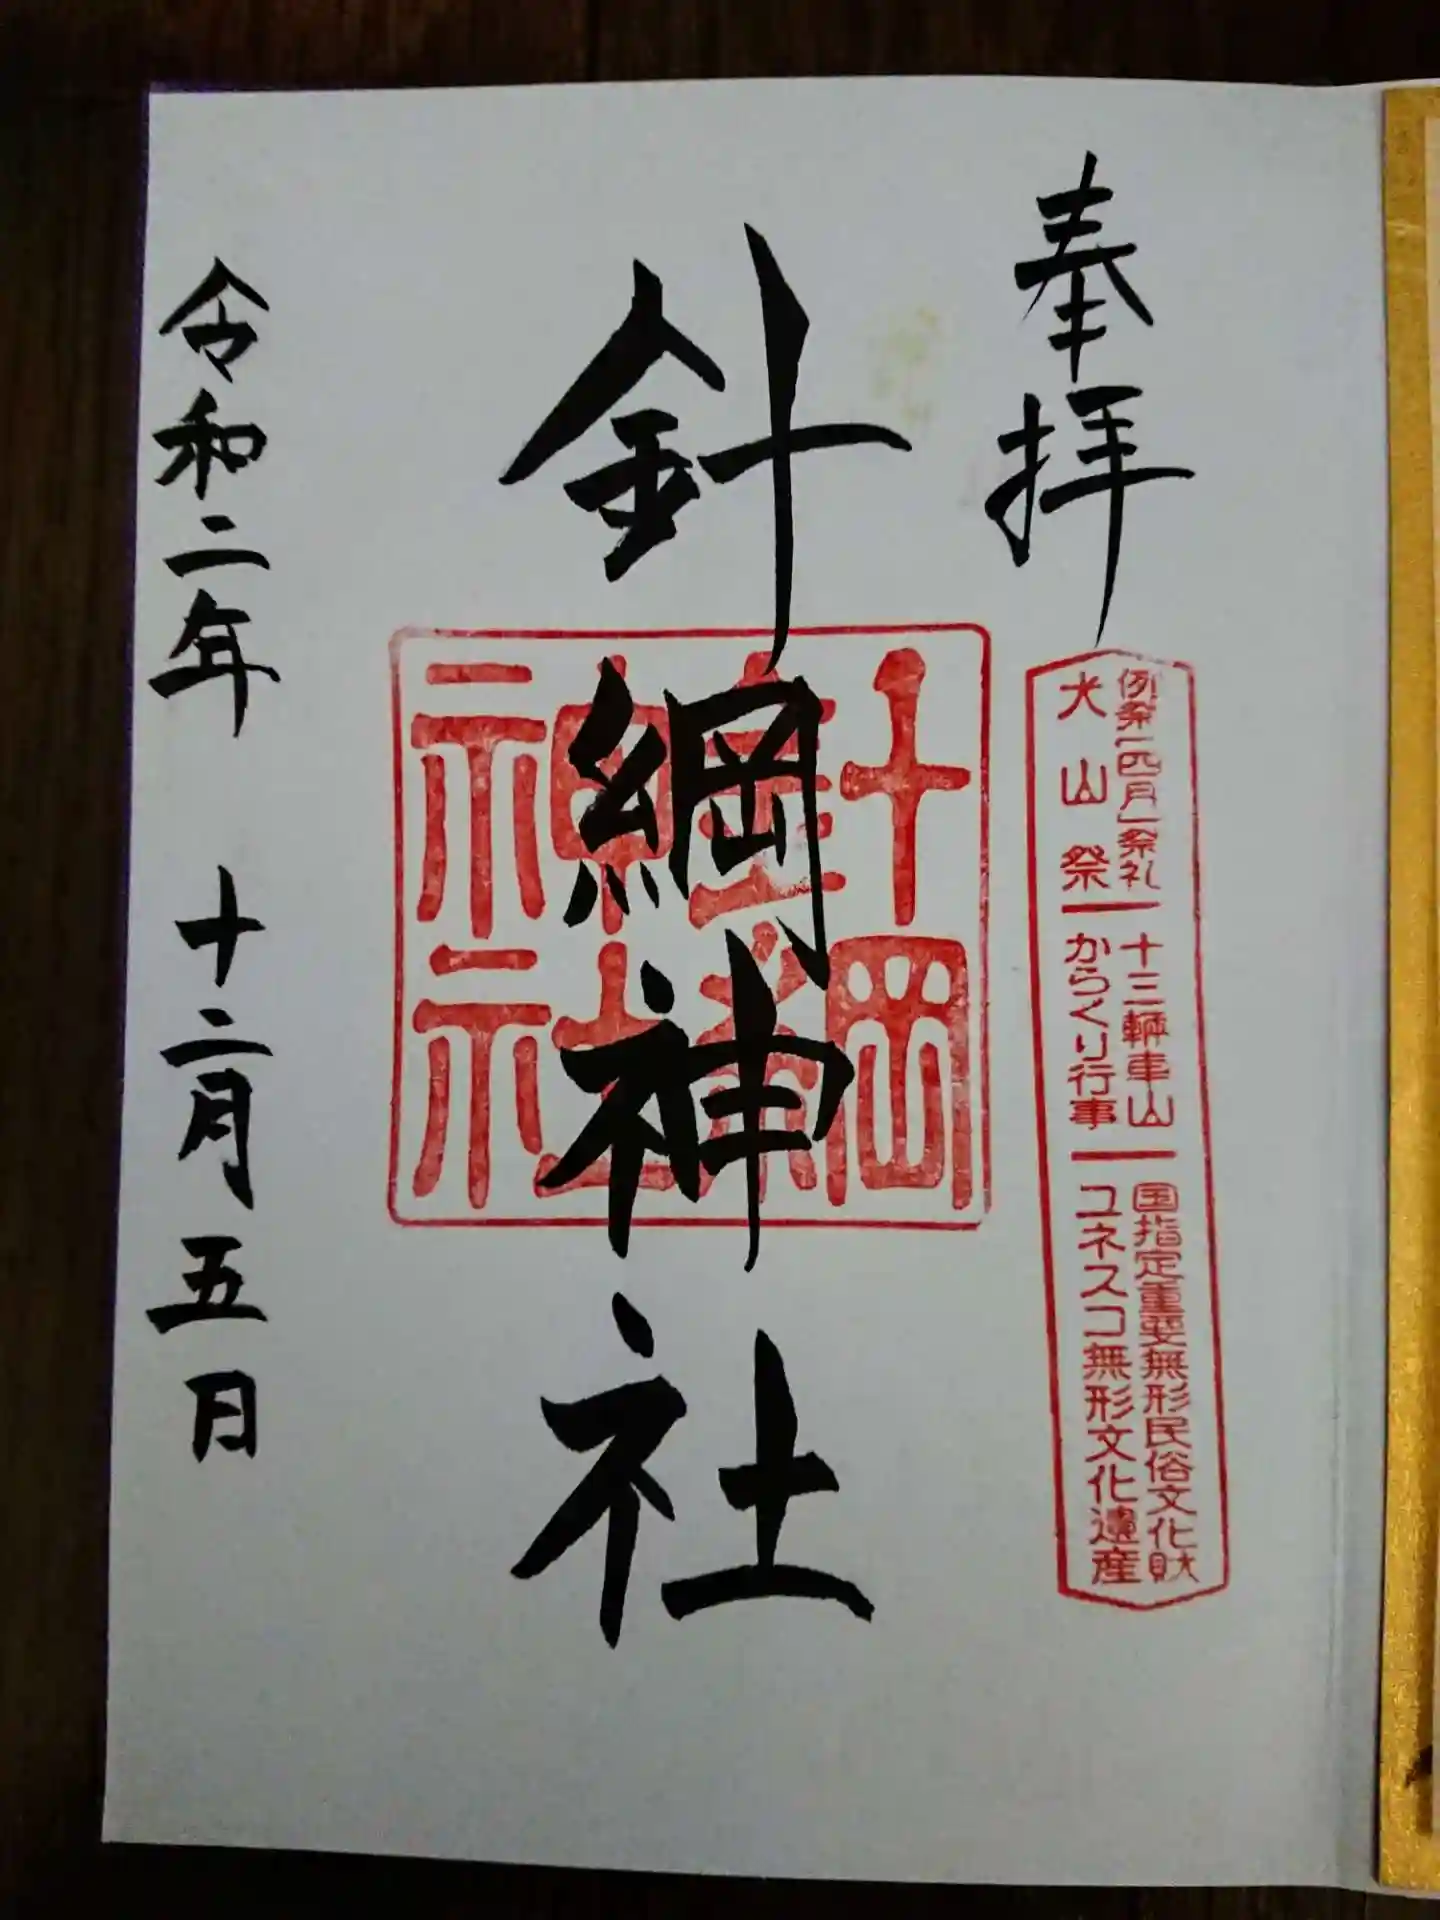 奉拝
例祭一四月一祭礼
犬山祭一
十三輌車山一
からくり行事一
国指定重要無形民俗文化財
ユネスコ無形文化遺産
針綱神社
針綱神社
令和二年 十二月五日